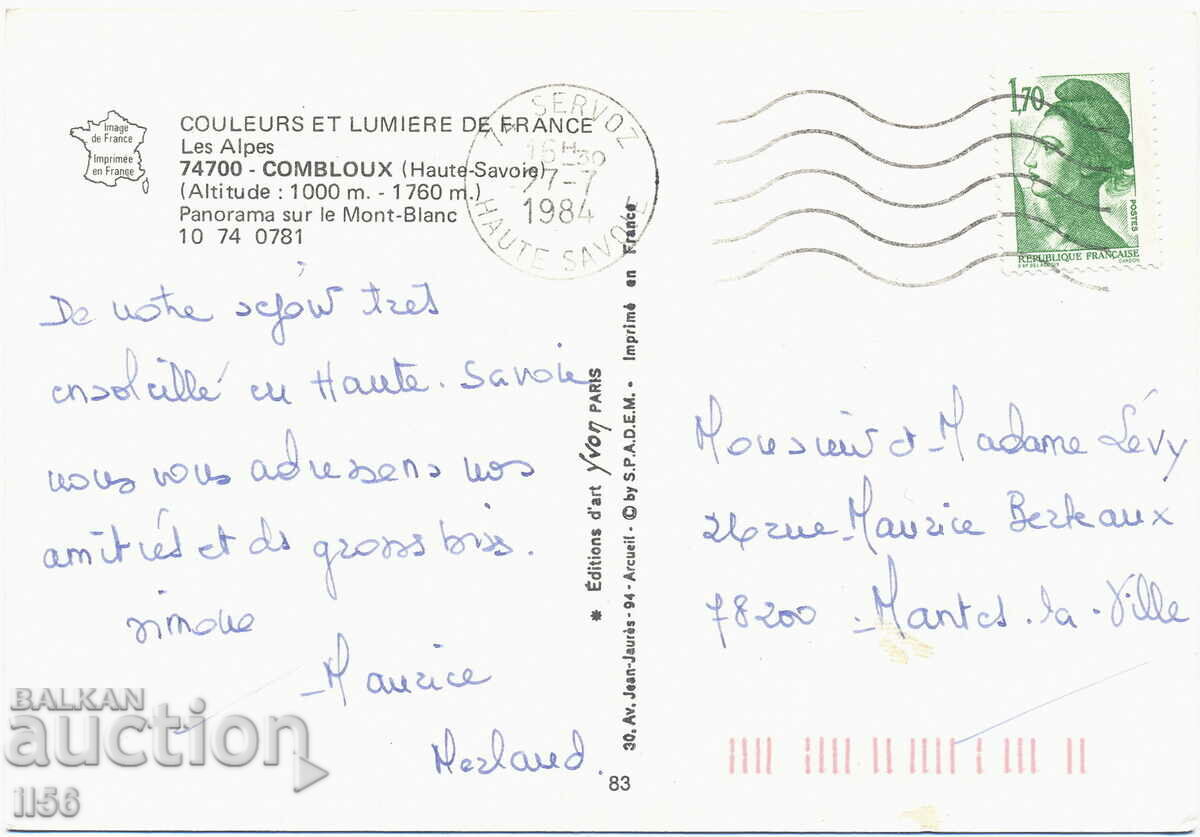 Image
de France
Imprimée
en France
COULEURS ET LUMIERE DE FRANCE
Les Alpes
74700 - COMBLOUX (Haute-Savoie)
(Altitude : 1000 m. - 1760 m.)
Panorama sur le Mont-Blanc
10 74 0781
SERVOZ
16H30
27-7
1984
HAUTE SAVOIE
1,70
POSTES
RÉPUBLIQUE FRANÇAISE
GANDON
De notre séjour très
ensoleillé en Haute-Savoie
nous vous adressons nos
amitiés et de grosses bises.
Simone
Maurice
Merland.
* Éditions d'art Yvon PARIS
30, Av. Jean-Jaurès - 94 - Arcueil - © by S.P.A.D.E.M. - Imprimé en France
83
Monsieur et Madame Lévy
26 rue Maurice Berteaux
78200 Mantes-la-Ville
BALKAN
auction
1156